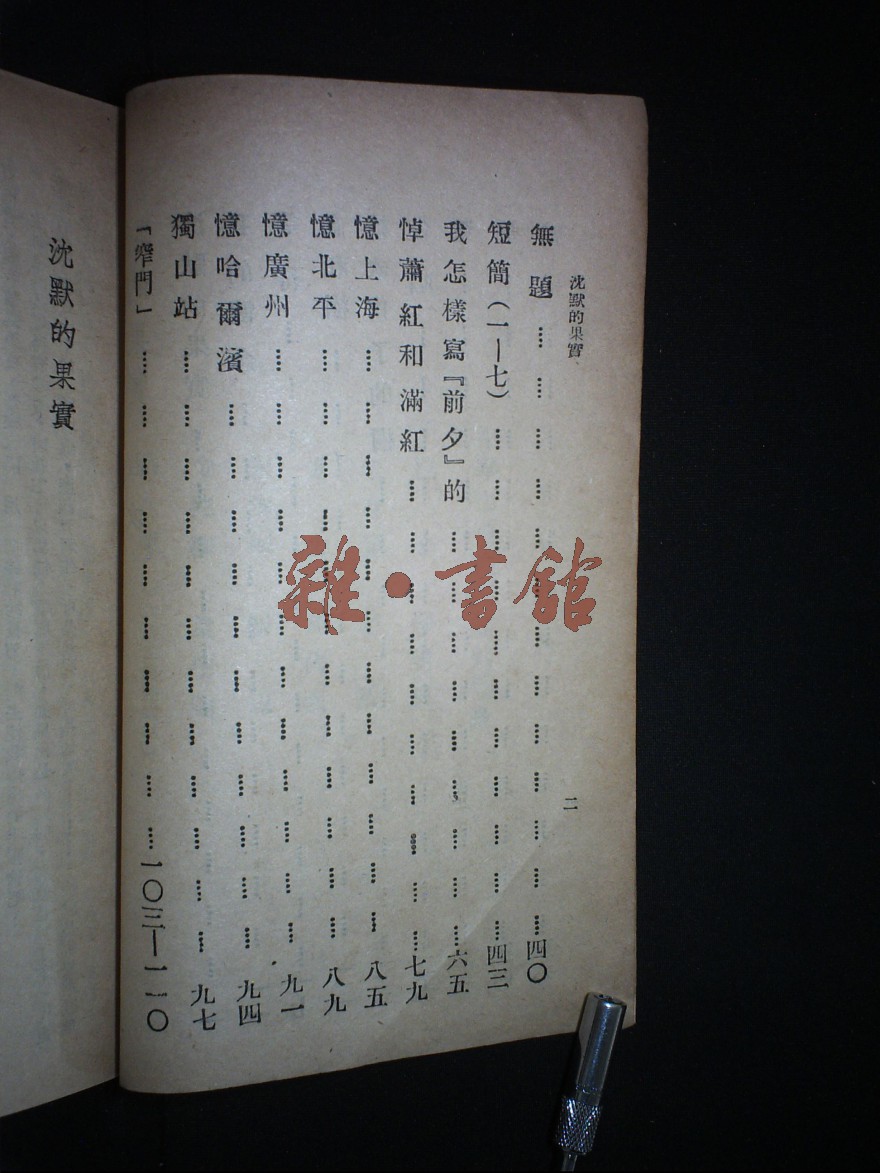 沈默的果實
二
無題 四〇
短簡(一—七) 四三
我怎樣寫『前夕』的 六五
悼蕭紅和滿紅 七九
憶上海 八五
憶北平 八九
憶廣州 九一
憶哈爾濱 九四
獨山站 九七
「窄門」 一〇三—一一〇
沈默的果實
雜·書館